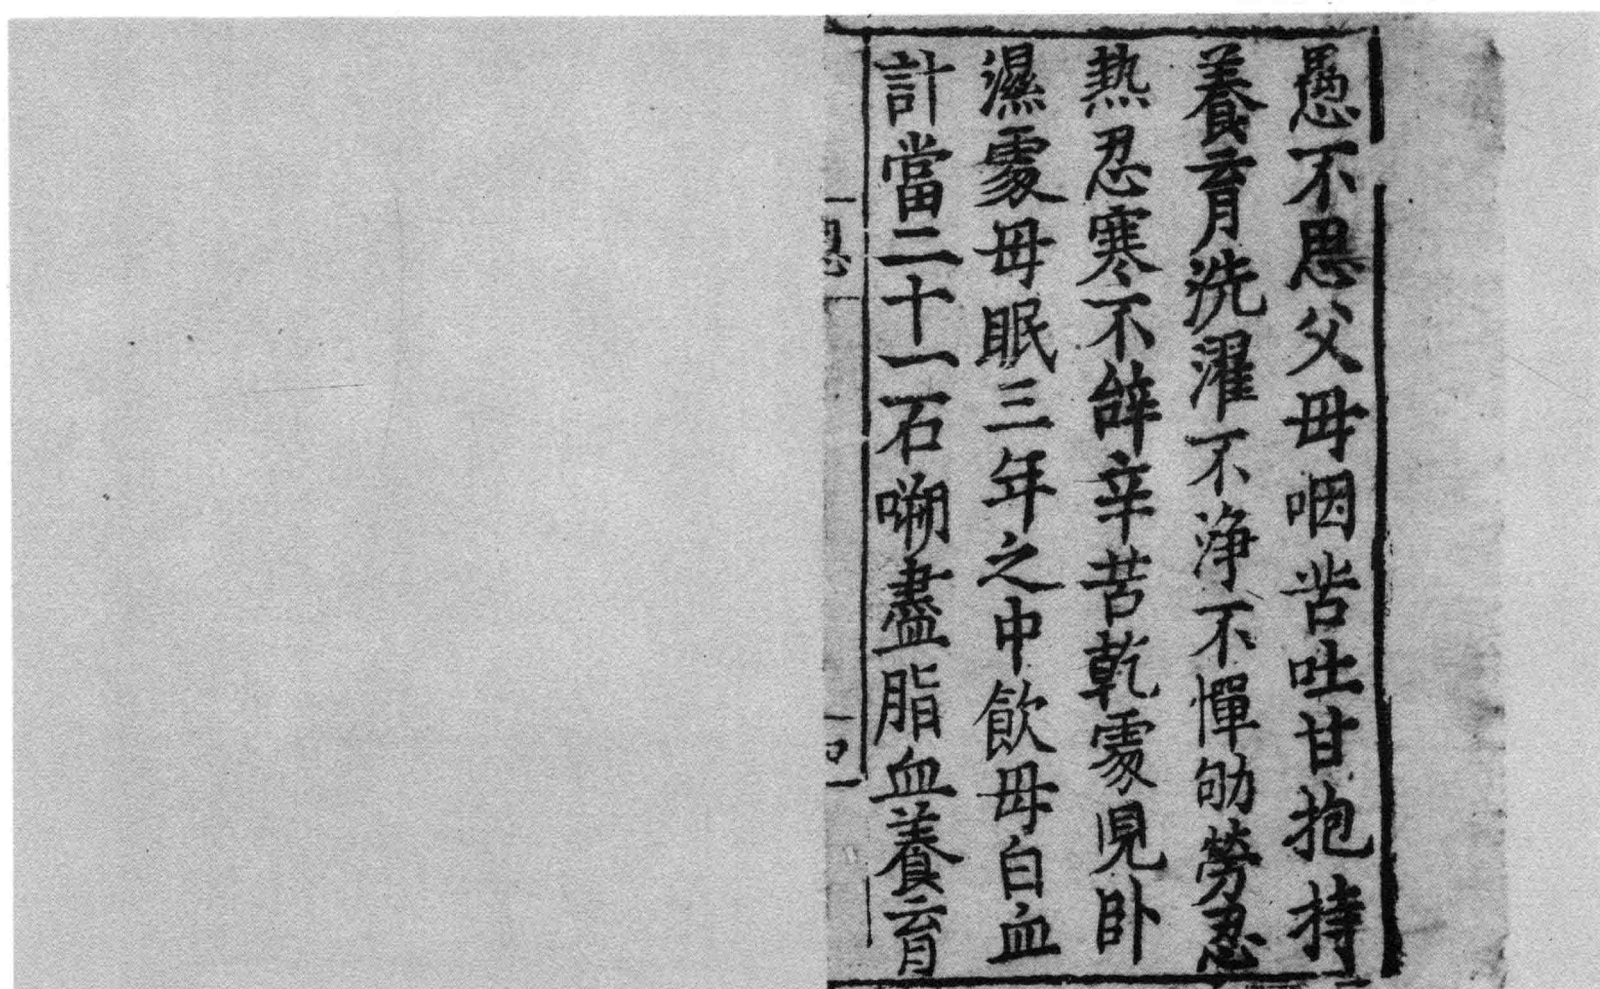 愚不思父母咽苦吐甘抱持
養育洗濯不淨不憚劬勞忍
热忍寒不辝辛苦乾䖏児卧
濕䖏母眠三年之中飲母白血
計當二十一石嗍盡脂血養育
恩